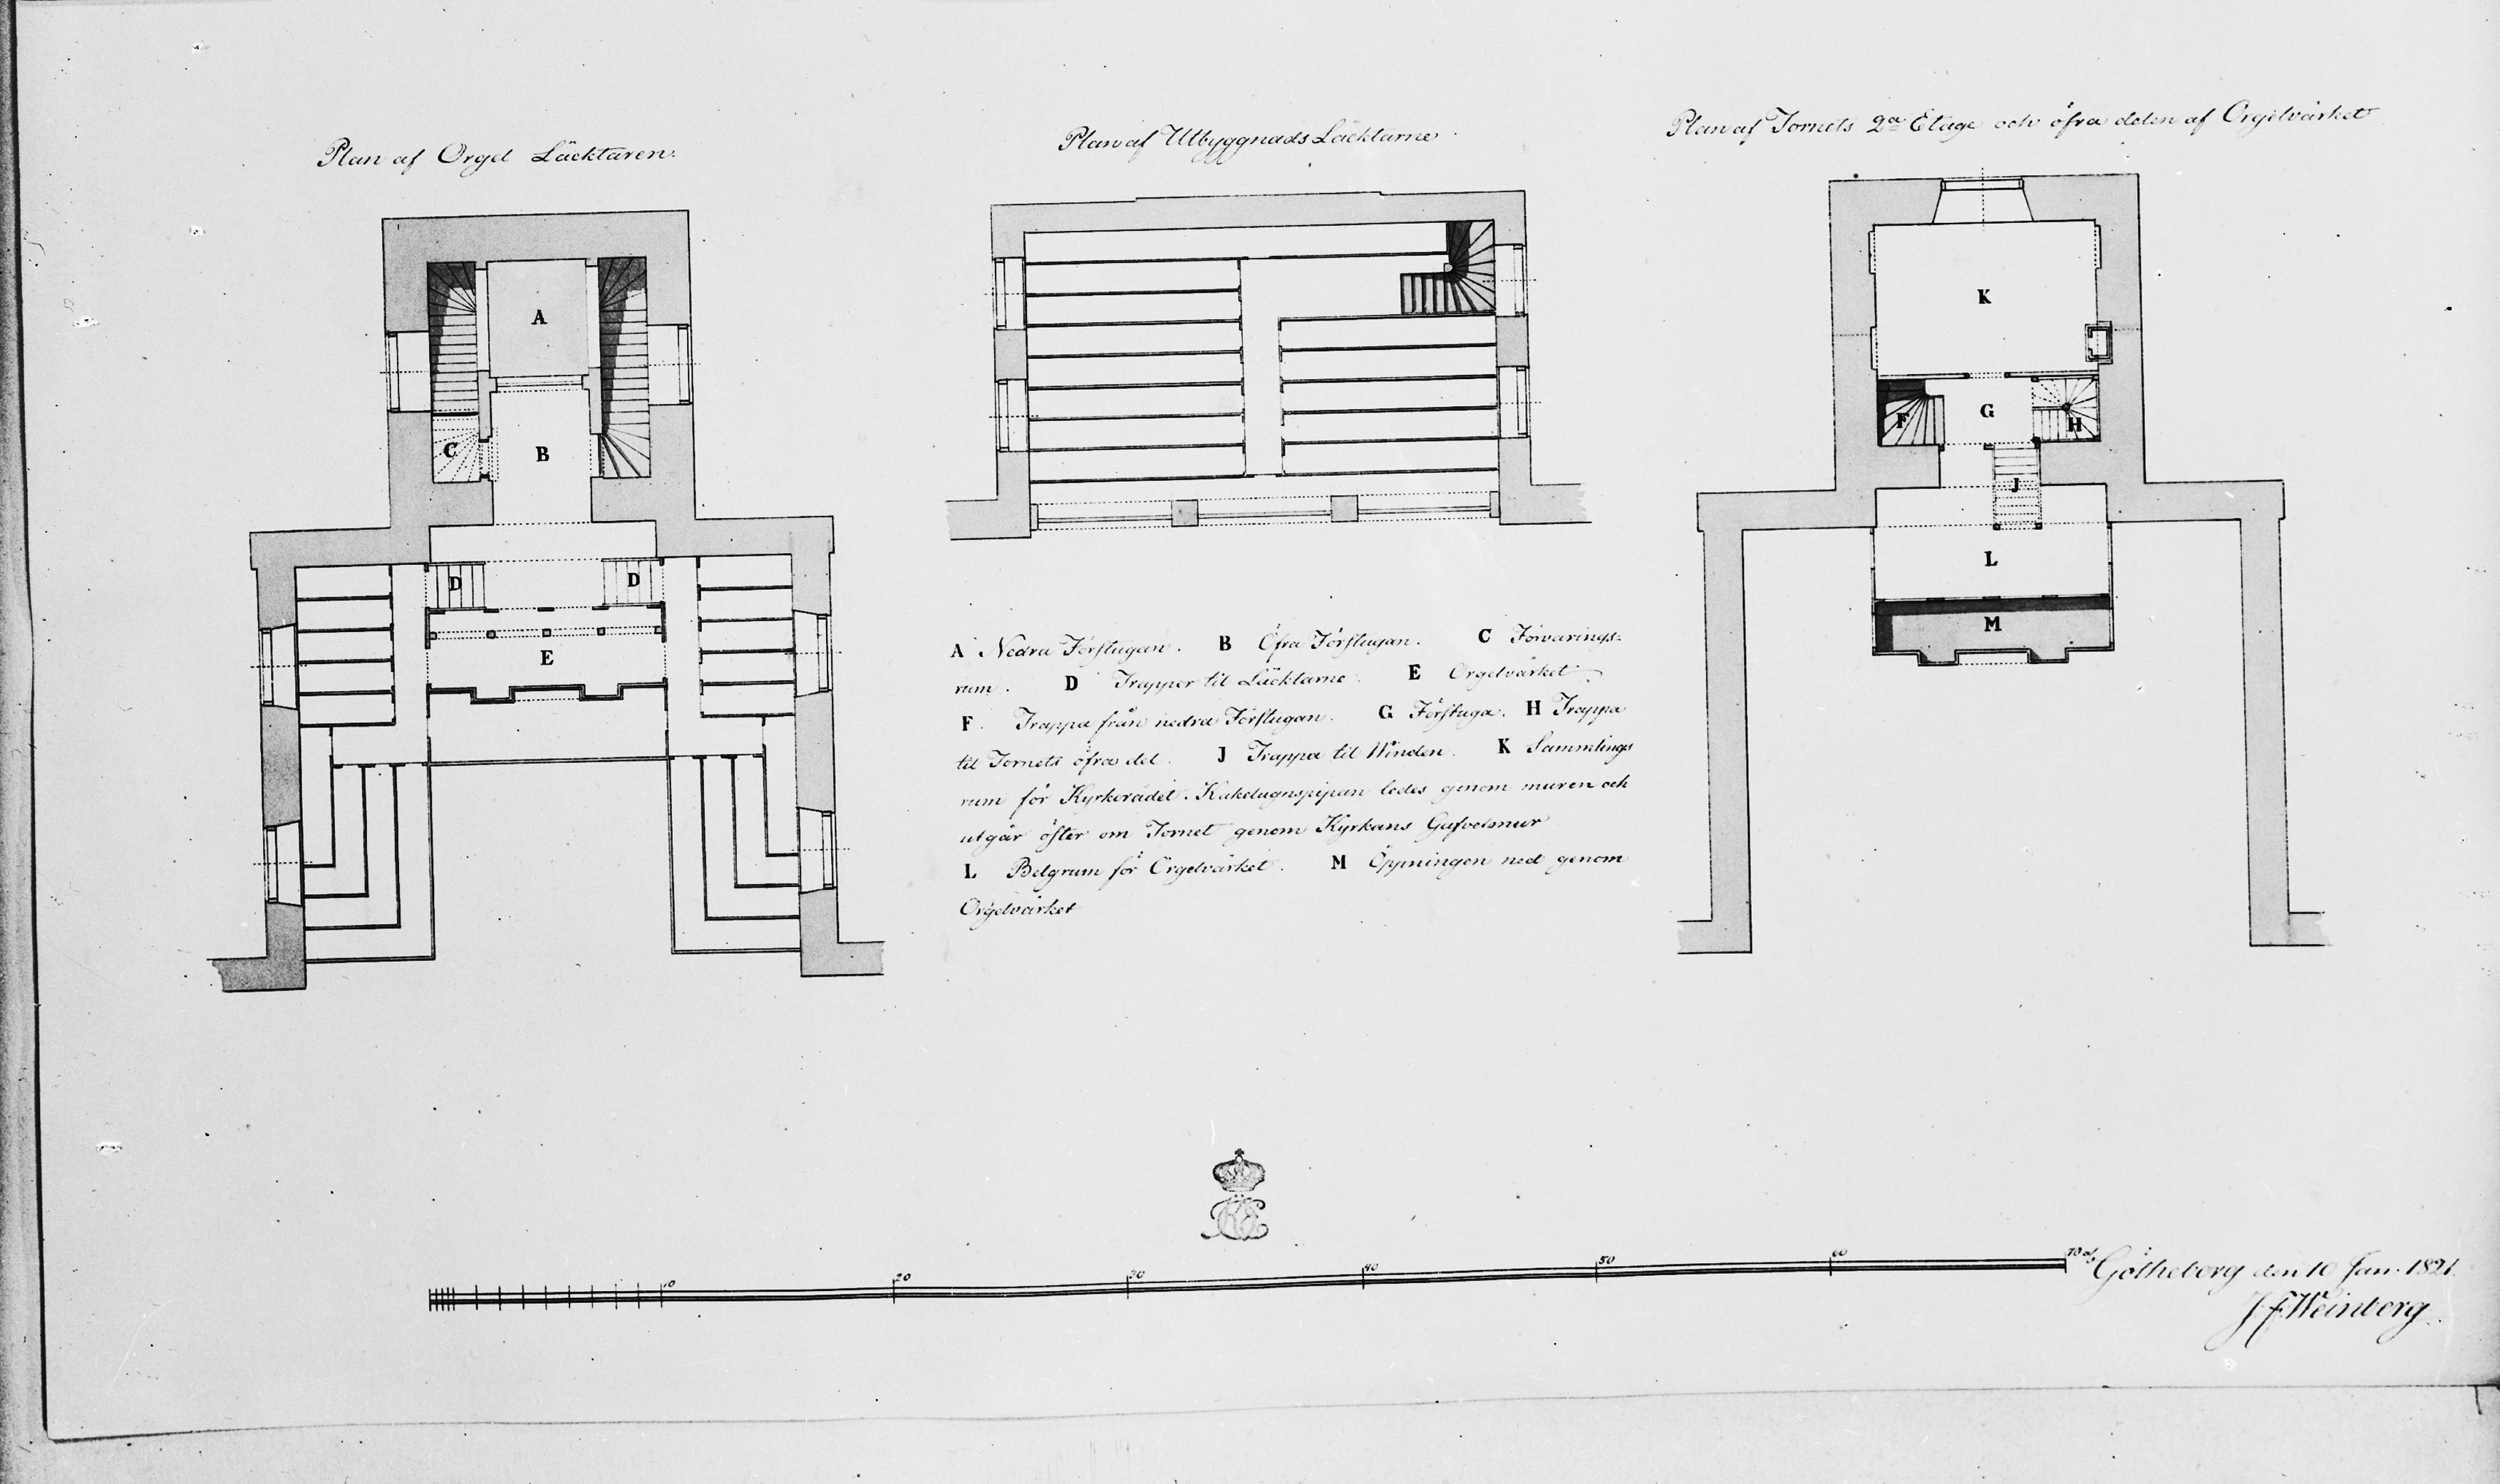 Plan af Orgel Läcktaren.
Plan af Utbyggnads Läcktarne
Plan af Tornets 2a Etage och öfra delen af Orgelvärket
A
B
C
D
D
E
K
F
G
H
J
L
M
A Nedra Förstugan. B Öfra Förstugan. C Förvarings-
rum. D Trappor til Läcktarne. E Orgelvärket.
F. Trappa från nedra Förstugan. G Förstuga. H Trappa
til Tornets öfra del. J Trappa til Winden. K Sammlings
rum för Kyrkorådet. Kakelugnspipan ledes genom muren och
utgår öfter om Tornet genom Kyrkans Gafvelmur
L Belgrum för Orgelvärket. M Öppningen ned genom
Orgelvärket
10 20 30 40 50 60 70 al
Götheborg den 10 Jan. 1821.
J f Weinberg.